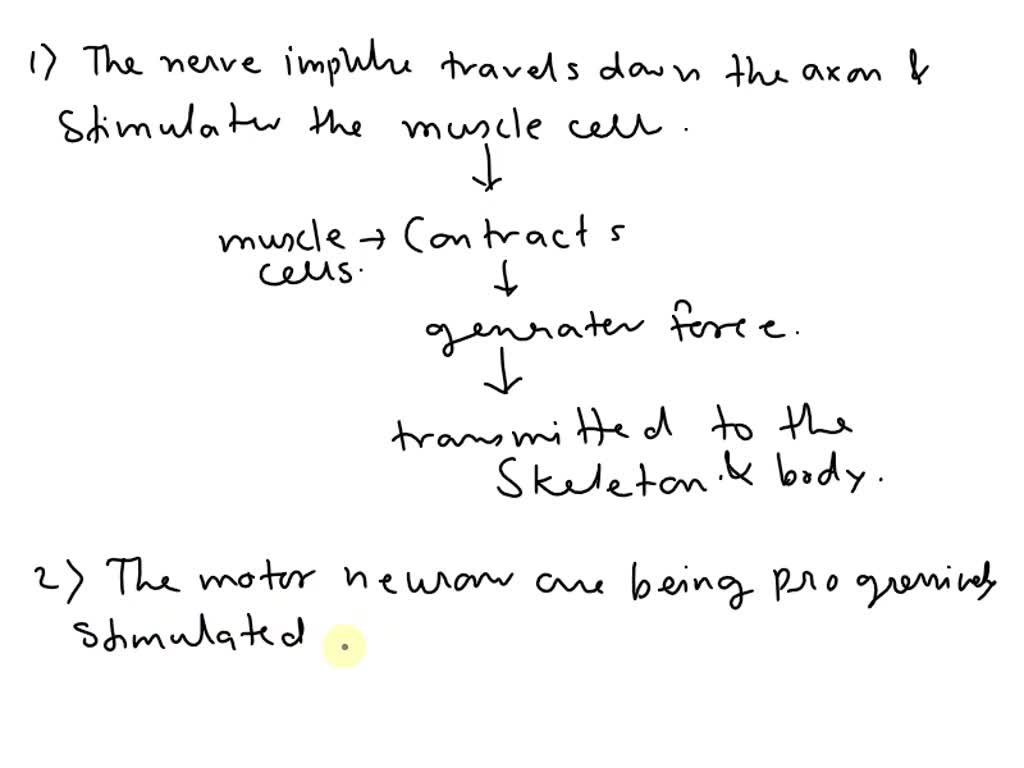 1) The nerve impulse travels down the axon &
stimulates the muscle cell.
↓
muscle → Contracts
cells.
↓
generates force.
↓
transmitted to the
Skeleton & body.
2) The motor neurons are being progressively
stimulated